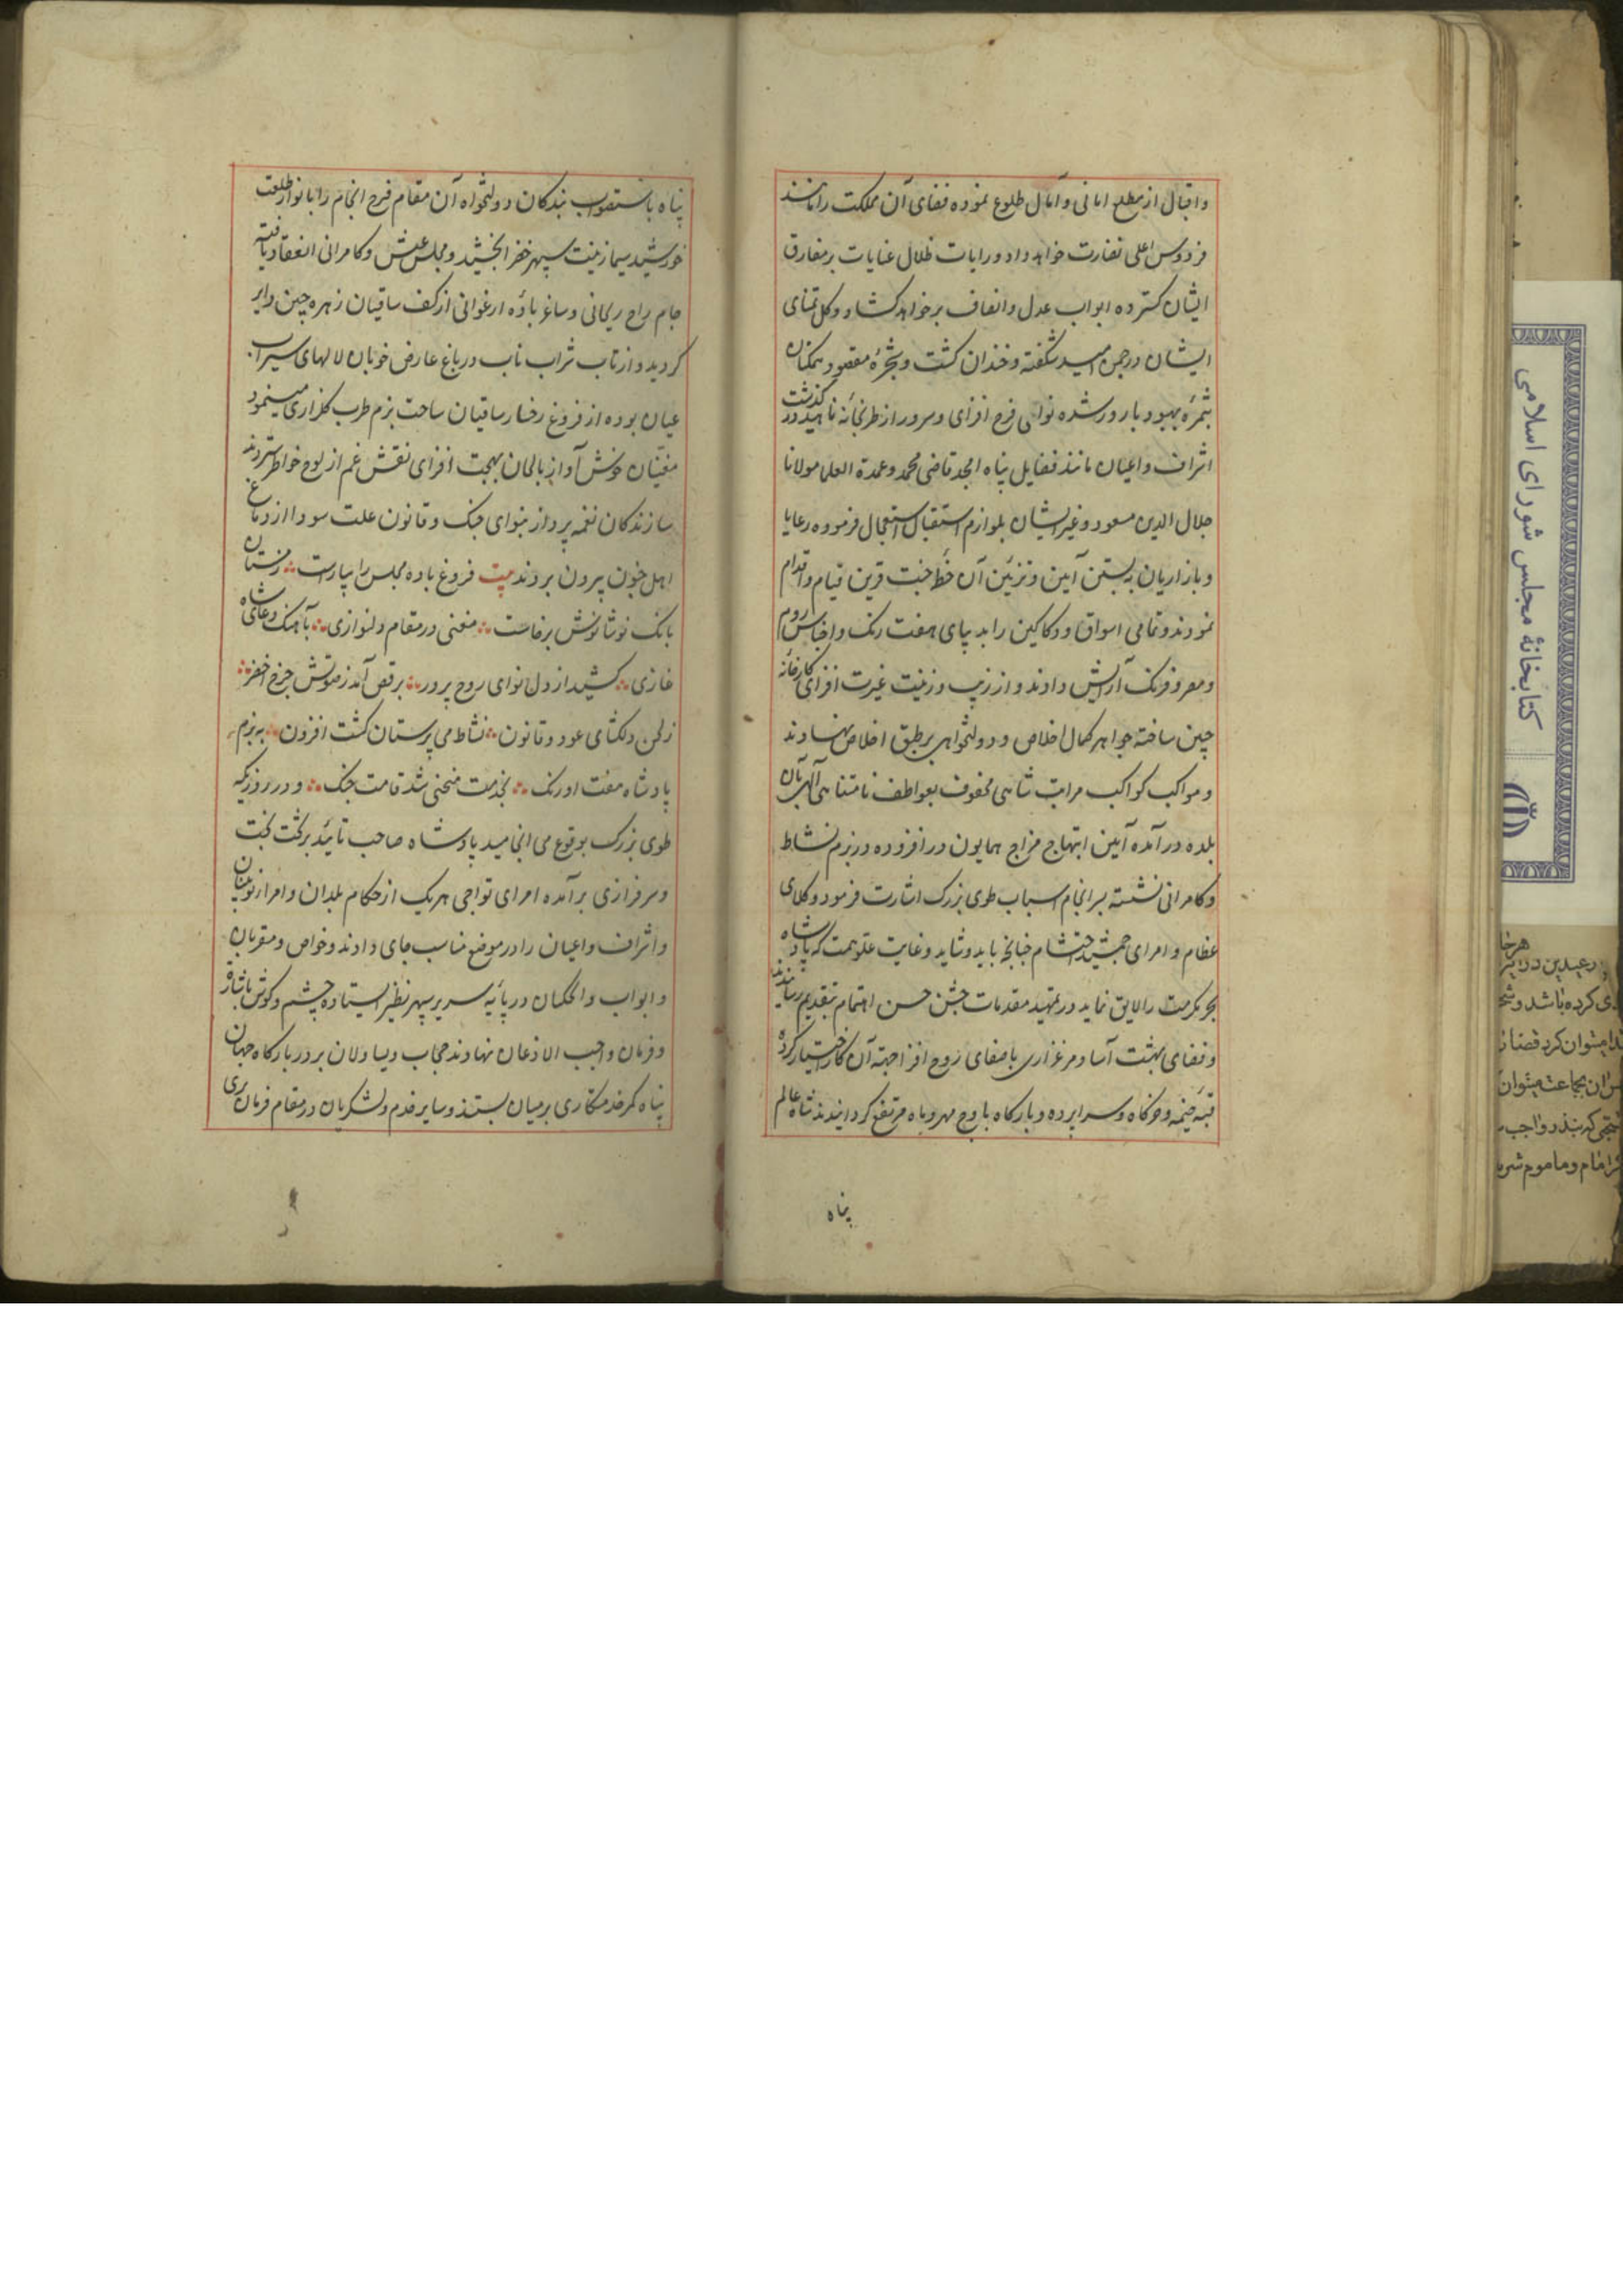 و اقبال از مطلع امانی و آمال طلوع نموده فضای آن مملکت را مانند
فردوس اعلی نضارت خواهد داد و رایات ظلال عنایات بر مفارق
ایشان گسترده ابواب عدل و انصاف بر خواهد گشاد و گل تمنای
ایشان در چمن امید شکفته و خندان گشت و شجرهٔ مقصود همکنان
بثمرهٔ بهبود بارور شده نوای فرح افزای و سرور از طربخانهٔ ناهید در گذشت
اشراف و اعیان مانند فضایل پناه امجد قاضی محمد و عمدة العلما مولانا
جلال الدین مسعود و غیر ایشان بلوازم استقبال استعجال فرموده رعایا
و بازاریان به بستن آیین و تزئین آن خطهٔ جنت قرین قیام و اقدام
نمودند و تمامی اسواق و دکاکین را بدیبای هفت رنگ و اجناس روم
و مصر و فرنک آرایش دادند و از زیب و زینت غیرت افزای کارخانهٔ
چین ساخته جواهر کمال اخلاص و دولتخواهی بر طبق اخلاص نهادند
و مواکب کواکب مراتب شاهی محفوف بعواطف نامتناهی الهی بآن
بلده درآمده آیین ابتهاج مزاج همایون در افزوده در بزم نشاط
و کامرانی نشسته بسرانجام اسباب طوی بزرک اشارت فرمود وکلای
عظام و امرای جمشید احتشام چنانچه باید و شاید و غایت علو همت که پادشاه
بحر مکرمت را لایق نماید در تمهید مقدمات جشن حسن اهتمام بتقدیم رسانیدند
و فضای بهشت آسا و مرغزاری باصفای روح افزا جهة آن کار اختیار کرده
قبهٔ خیمه و خرگاه و سراپرده و بارگاه باوج مهر و ماه مرتفع گردانیدند شاه عالم
پناه
پناه باستصواب بندگان دولتخواه آن مقام فرح انجام را بانوار طلعت
خورشید سیما زینت سپهر خضرا بخشید و مجلس عیش و کامرانی انعقاد یافته
جام راح ریحانی و ساغر بادهٔ ارغوانی از کف ساقیان زهره جبین دایر
گردید و از تاب شراب ناب در باغ عارض خوبان لالهای سیراب
عیان بوده از فروغ رخسار ساقیان ساحت بزم طرب گلزاری مینمود
مغنیان خوش آواز بالحان بهجت افزای نقش غم از لوح خواطر ستردند
سازندگان نغمه پرداز بنوای چنک و قانون علت سودا از دماغ
اهل جنون بیرون بردند بیت فروغ باده مجلس را بیاراست ز مستان
بانک نوشانوش برخاست مغنی در مقام دلنوازی بآهنک دعای شاه
غازی کشید از دل نوای روح پرور برقص آمد ز صوتش چرخ اخضر
ز لحن دلکشای عود و قانون نشاط می پرستان گشت افزون به بزم
پادشاه هفت اورنک بخدمت منحنی شد قامت چنک و در روزیکه
طوی بزرک بوقوع می انجامید پادشاه صاحب تائید بر تخت بخت
و سرفرازی برآمده امرای تواجی هر یک از حکام بلدان و امرا و نوئینان
و اشراف و اعیان را در موضع مناسب جای دادند و خواص و مقربان
و ابواب و الحکمان در پایهٔ سریر سپهر نظیر ایستاده چشم و گوش باشارة
و فرمان واجب الاذعان نهادند حجاب و یساولان بر در بارگاه جهان
پناه کمر خدمتکاری بر میان بستند و سایر خدم و لشکریان در مقام فرمان بری
کتابخانهٔ مجلس شورای اسلامی